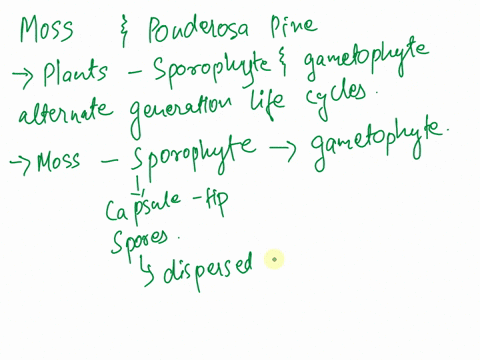 Moss & Ponderosa Pine
→ Plants - Sporophyte & gametophyte
alternate generation life cycles.
→ Moss - Sporophyte → gametophyte.
Capsule - tip
Spores.
↳ dispersed